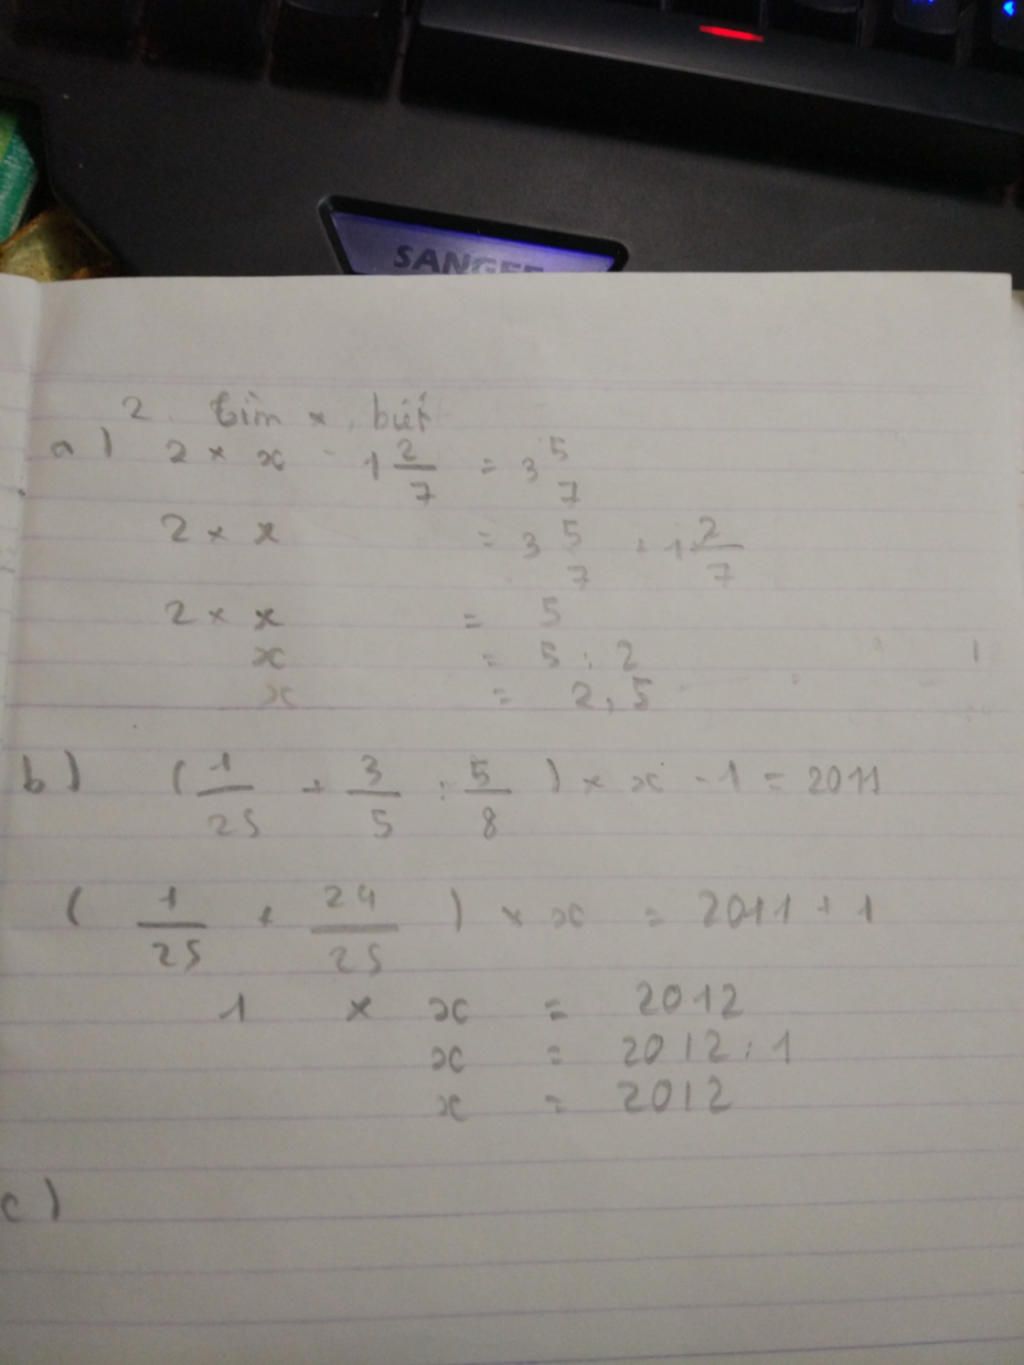 SANGEE
2. Tìm x, biết
a) 2 × x - 1 2/7 = 3 5/7
2 × x = 3 5/7 + 1 2/7
2 × x = 5
x = 5 : 2
x = 2,5
b) (1/25 + 3/5 : 5/8) × x - 1 = 2011
(1/25 + 24/25) × x = 2011 + 1
1 × x = 2012
x = 2012 : 1
x = 2012
c)